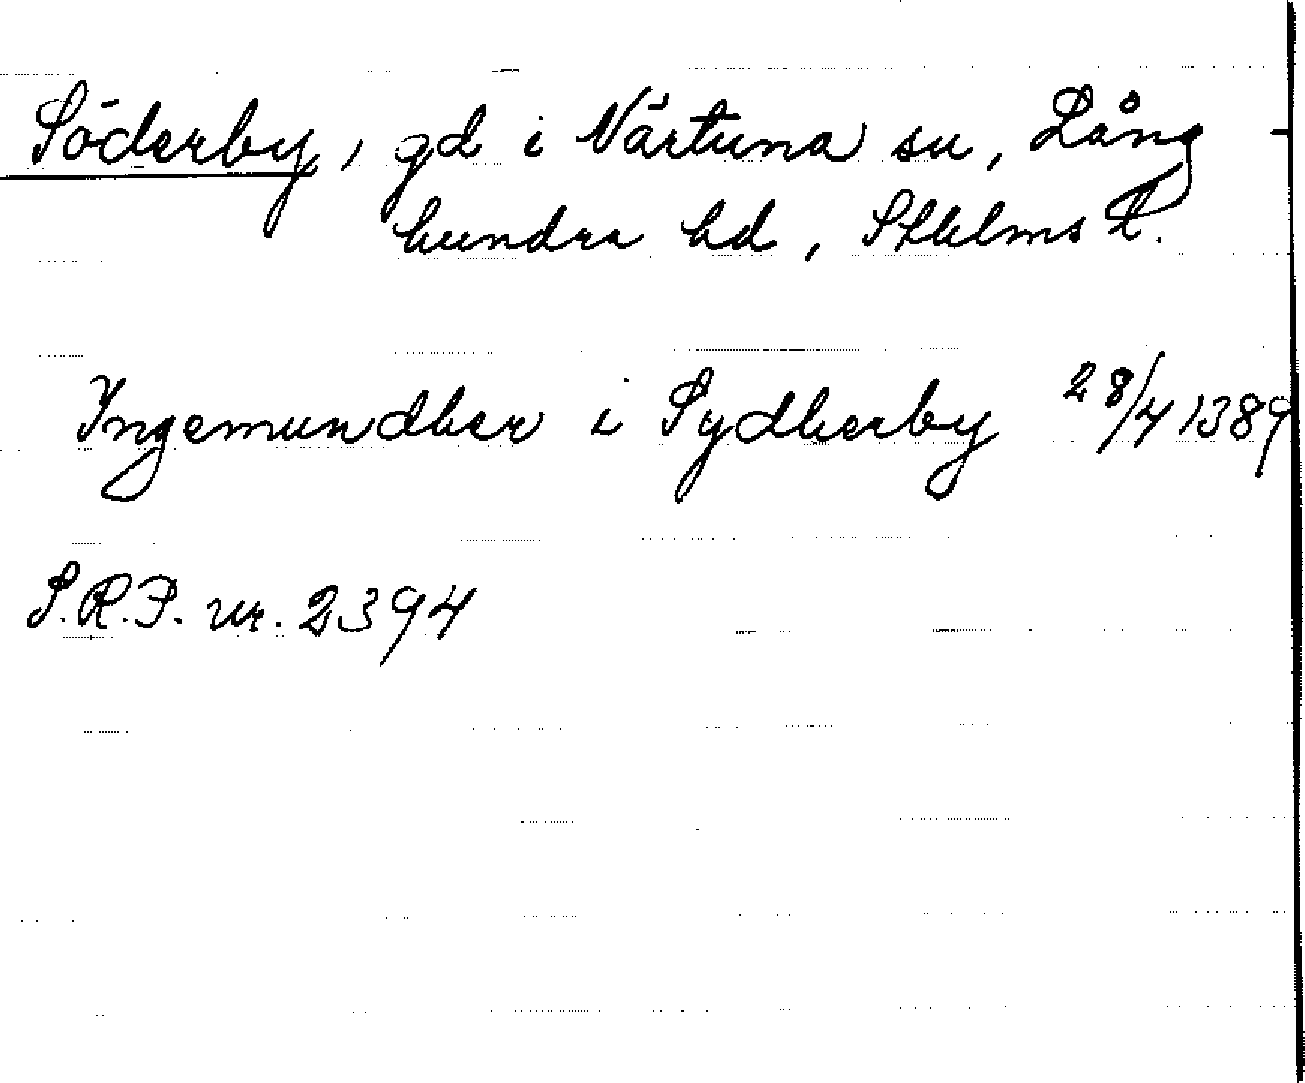 Söderby, gd i Närtuna sn, Lång-
hundra hd, Sthlms l.
Ingemundher i Sydherby 28/4 1389
S.R.P. nr. 2394